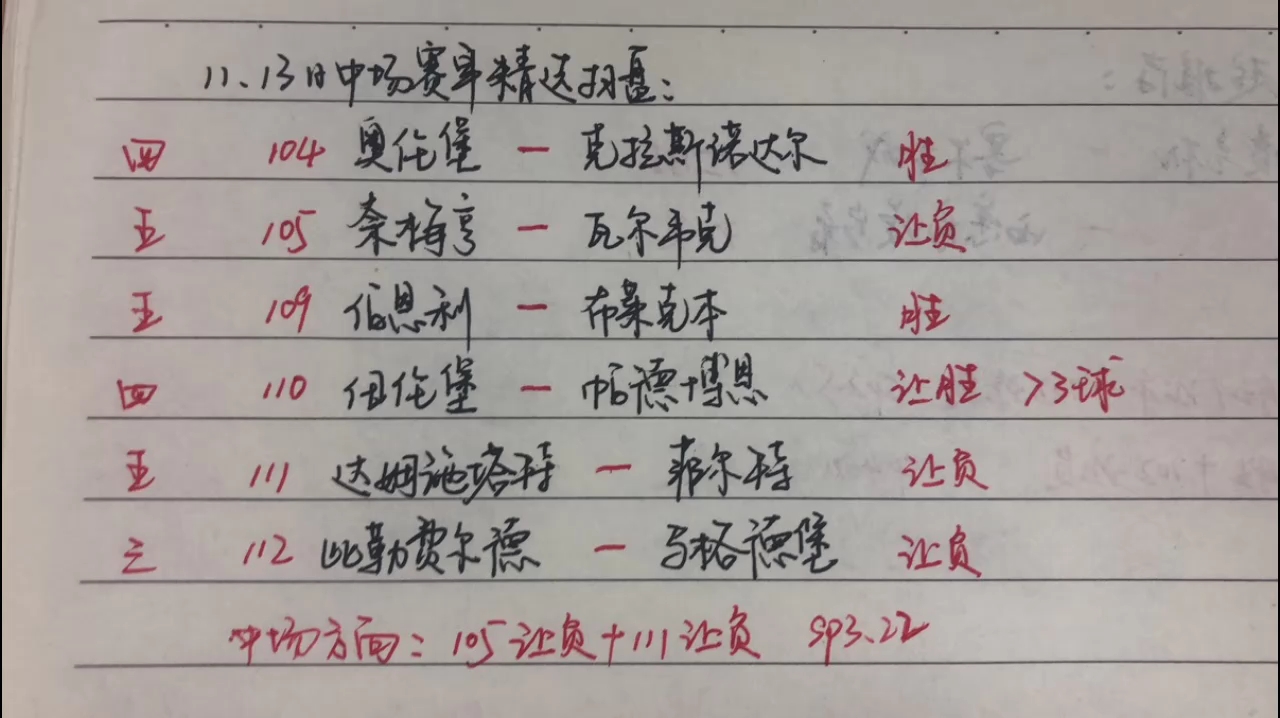 11.13日中场赛事精选扫盘：
四 104 奥伦堡 — 克拉斯诺达尔 胜
五 105 奈梅亨 — 瓦尔韦克 让负
五 109 伯恩利 — 布莱克本 胜
四 110 纽伦堡 — 帕德博恩 让胜 >3球
五 111 达姆施塔特 — 菲尔特 让负
三 112 比勒费尔德 — 马格德堡 让负
中场方向：105让负+111让负 sp3.22